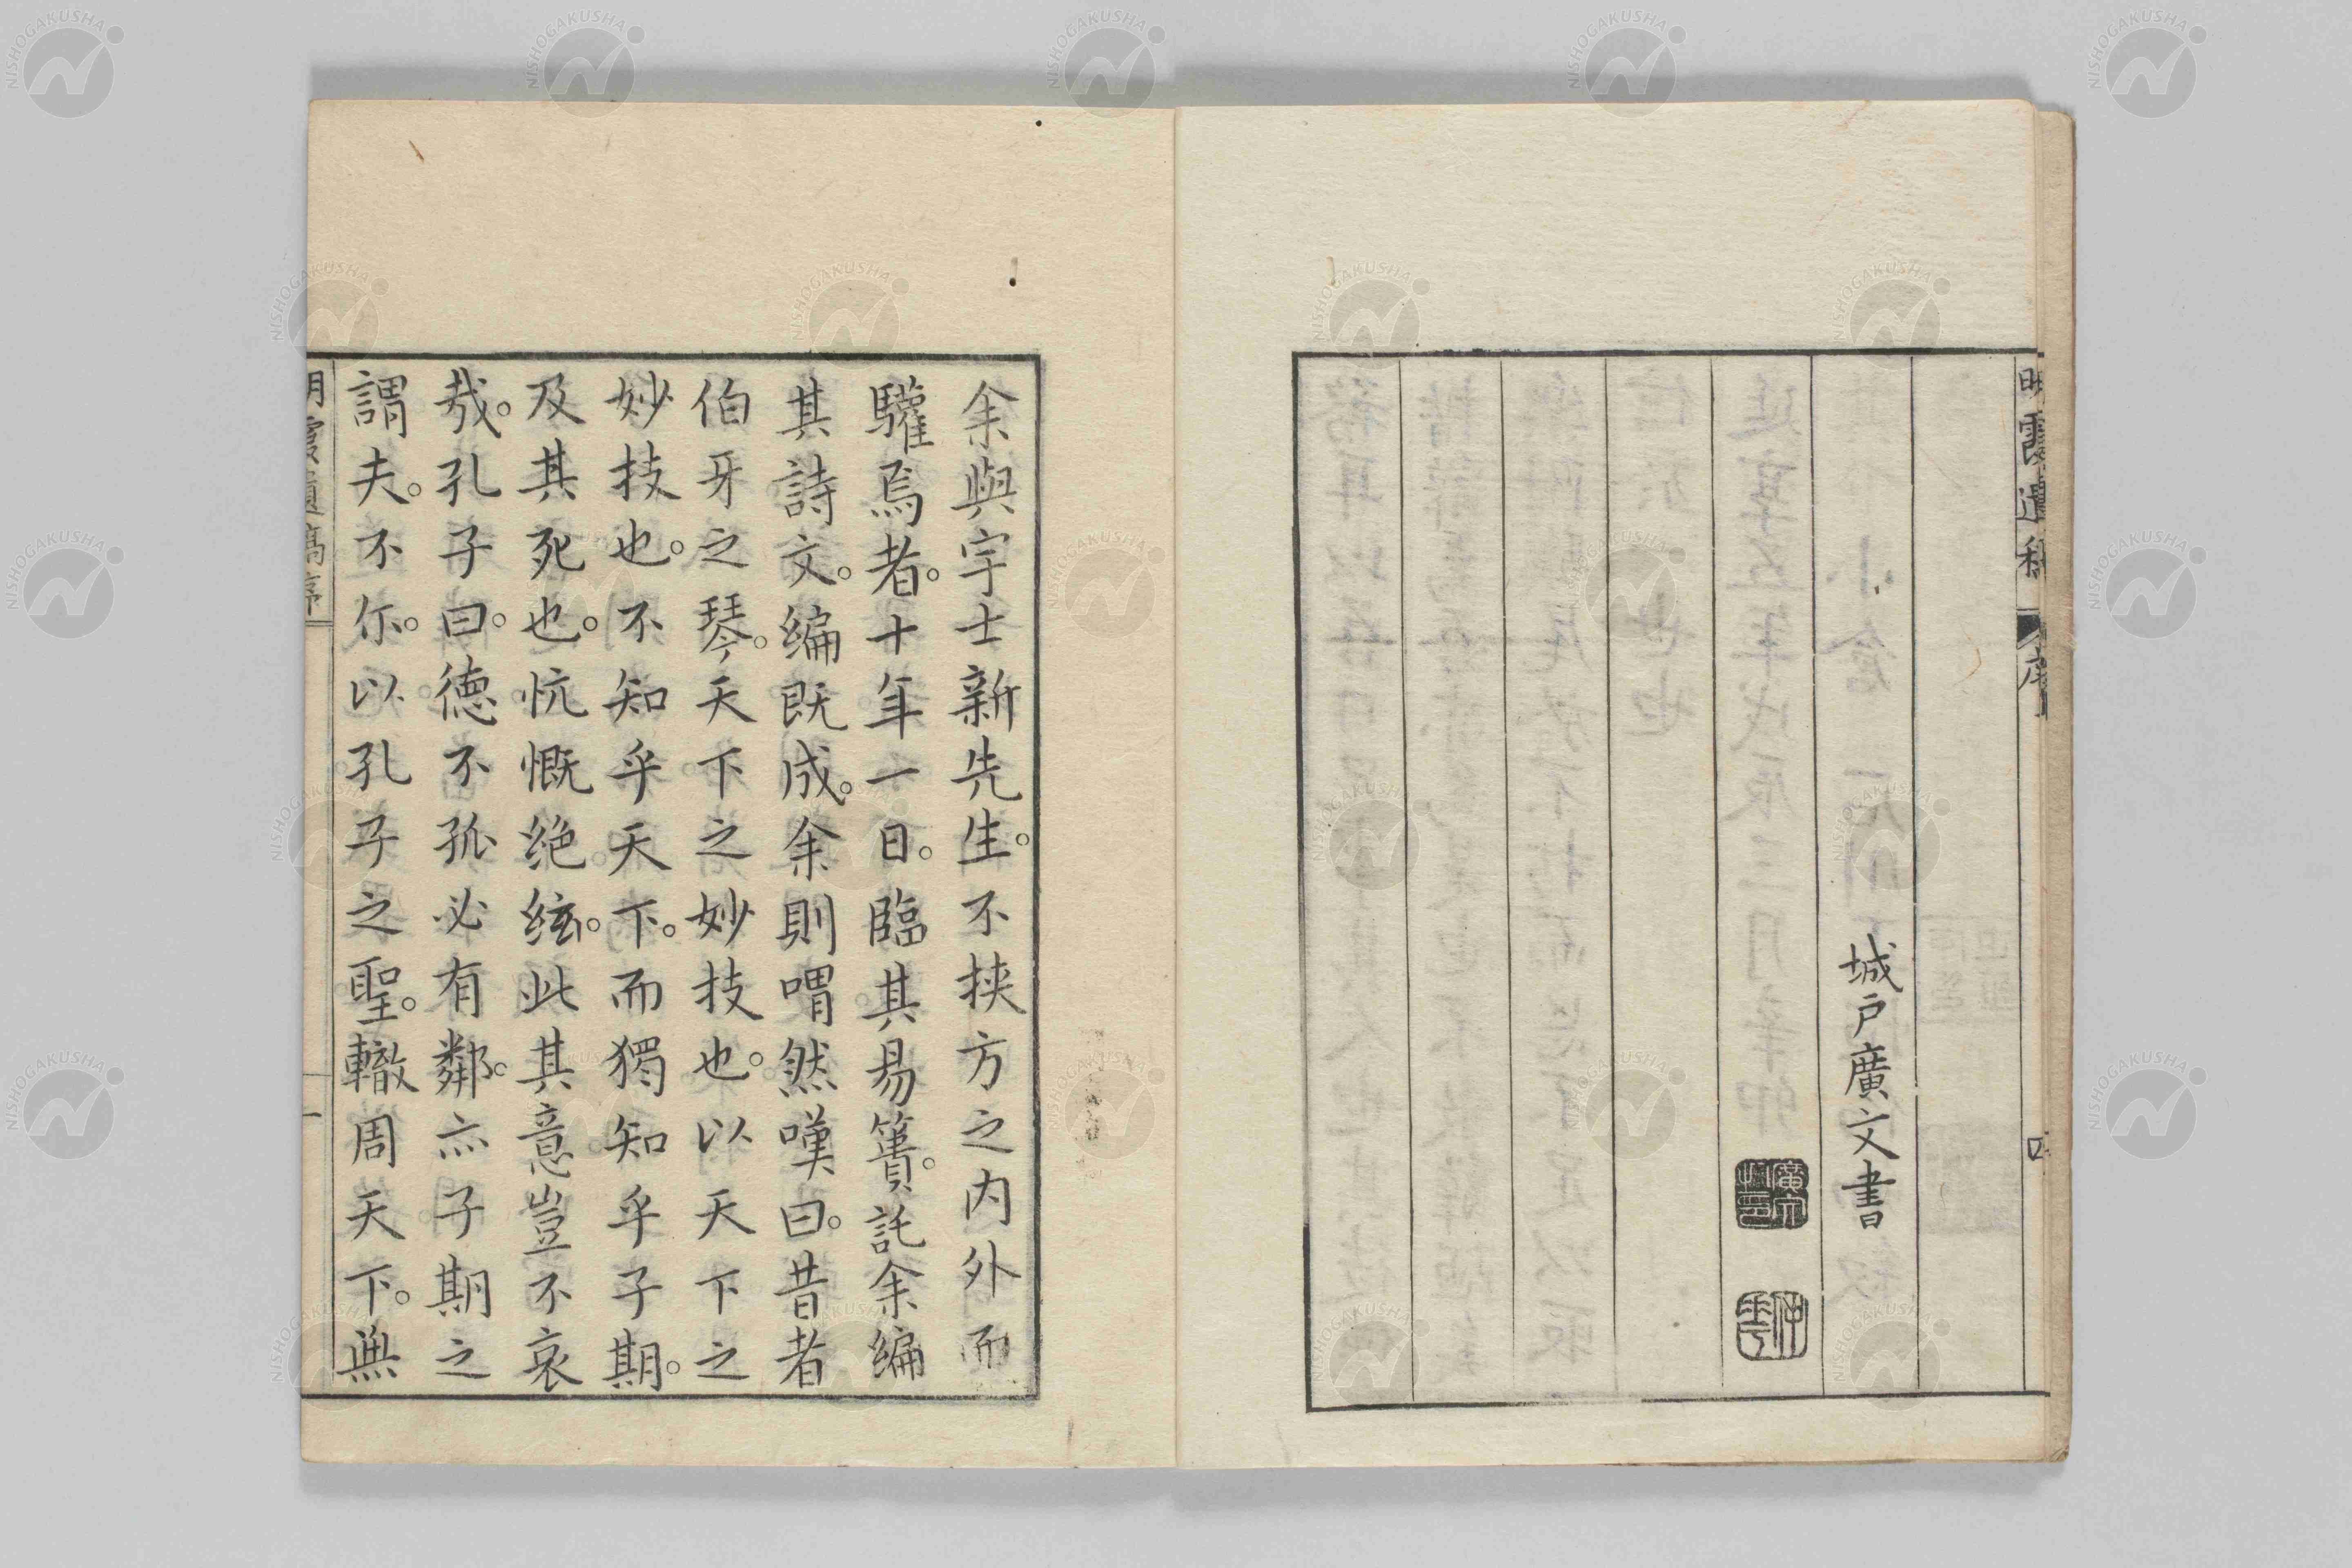 明霞遺稿
序
四
城戶廣文書
余與宇士新先生。不挾方之內外而
驩焉者。十年一日。臨其易簀。託余編
其詩文。編既成。余則喟然嘆曰。昔者
伯牙之琴。天下之妙技也。以天下之
妙技也。不知乎天下。而獨知乎子期。
及其死也。忼慨絶絃。此其意豈不哀
哉。孔子曰。德不孤必有鄰。亦子期之
謂夫。不尒。以孔子之聖。轍周天下。無
明霞遺稿序
一
NISHOGAKUSHA